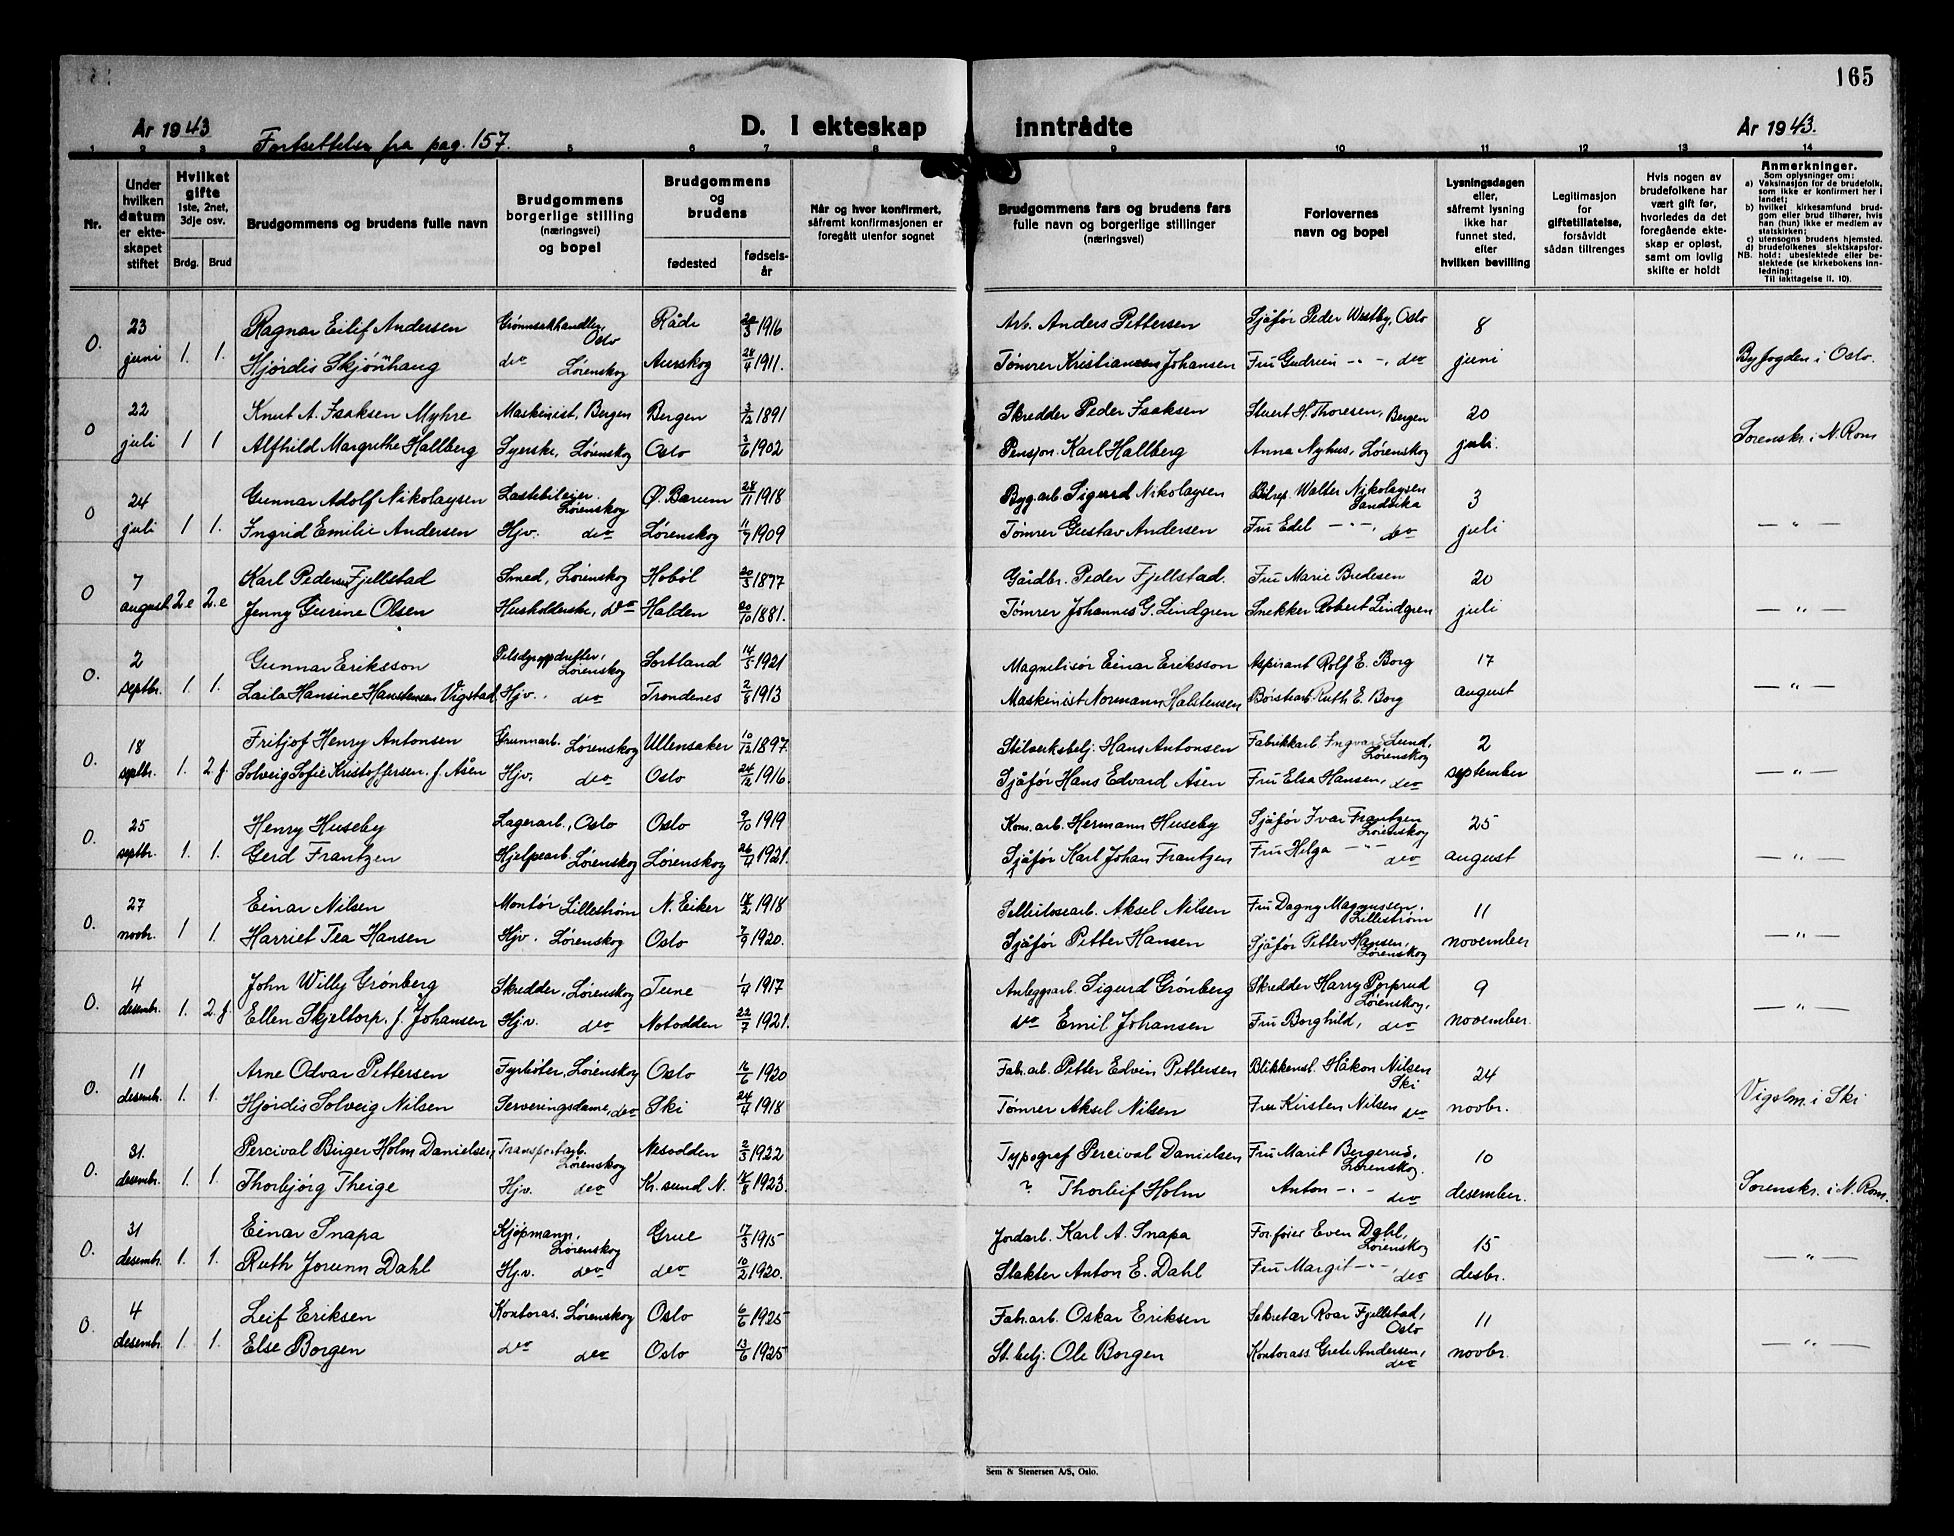 165
År 1943
Fortsettelse fra pag. 157.
D. I ekteskap inntrådte
År 1943.
1 2 3 5 6 7 8 9 10 11 12 13 14
Nr.
Under hvilken datum er ekteskapet stiftet
Hvilket gifte 1ste, 2net, 3dje osv.
Brdg. Brud
Brudgommens og brudens fulle navn
Brudgommens borgerlige stilling (næringsvei) og bopel
Brudgommens og brudens
fødested
fødselsår
Når og hvor konfirmert, såfremt konfirmasjonen er foregått utenfor sognet
Brudgommens fars og brudens fars fulle navn og borgerlige stillinger (næringsvei)
Forlovernes navn og bopel
Lysningsdagen eller, såfremt lysning ikke har funnet sted, efter hvilken bevilling
Legitimasjon for giftetillatelse, forsåvidt sådan tillrenges
Hvis nogen av brudefolkene har vært gift før, hvorledes da det foregående ekteskap er opløst, samt om lovlig skifte er holdt
Anmerkninger.
Som oplysninger om:
a) Vaksinasjon for de brudefolk, som ikke er konfirmert her i landet;
b) hvilket kirkesamfund brudgom eller brud tilhører, hvis han (hun) ikke er medlem av statskirken;
c) utensogns brudens hjemsted.
d) brudefolkenes slektskapsforhold: ubeslektede eller beslektede (se kirkebokens innledning:
NB.
Til iakttagelse II. 10).
0. 23 Ragnar Eilif Andersen Grønnsakhandler, Oslo Råde 20/3 1916 Arb. Anders Pettersen Sjåfør Peder Westby, Oslo 8
juni 1. 1. Hjørdis Skjønhaug do Lørenskog Aurskog 24/4 1911. Tømrer Kristian Johansen Fru Gudrun -"-, do juni Byfogden i Oslo.
0 22 Knut A. Isaksen Myhre Maskinist, Bergen Bergen 3/12 1891 Skredder Peder Isaksen Stuert H. Thoresen, Bergen 20
juli 1 1 Alfhild Margrethe Hallberg Syerske, Lørenskog Oslo 3/6 1902 Pensjon. Karl Hallberg Anna Nyhus, Lørenskog juli. Sorenskr. i N. Rom
0 24 Gunnar Adolf Nikolaysen Lastebileier. Lørenskog Ø. Bærum 28/11 1918 Bygarb. Sigurd Nikolaysen Walter Nikolaysen Sandvika 3
juli 1 1. Ingrid Emilie Andersen Hjv. do Lørenskog 11/7 1909 Tømrer Gustav Andersen Fru Edel -"-, do juli — " —
0 7 Karl Pedersen Fjellstad Smed, Lørenskog Hobøl 20/3 1877 Gårdbr. Peder Fjellstad. Fru Marie Bredesen 20
august 2.e 2.e Jenny Gurine Olsen Husholderske, do Halden 20/10 1881. Tømrer Johannes G. Lindgren Snekker Robert Lindgren juli — " —
0. 2 Gunnar Eriksson Pelsdyroppdretter, Lørenskog Sortland 14/5 1921 Einar Eriksson Aspirant Rolf E. Borg 17
septbr. 1. 1. Laila Hansine Vigstad Hjv. do Trondenes 2/8 1913 Maskinist Normann Halstensen Ruth E. Borg august — " —
0. 18 Fritjof Henry Antonsen Grunnarb. Lørenskog Ullensaker 10/12 1897. Hans Antonsen Fabrikkarb. Ingvar Lund, Lørenskog 2
septbr. 1. 2.f. Solveig Sofie Kristoffersen. f. Åsen Hjv. do Oslo 24/12 1916. Sjåfør Hans Edvard Åsen Fru Elsa Hansen, do september — " —
0. 25 Henry Huseby Lagerarb., Oslo Oslo 9/10 1919 Kom. arb. Hermann Huseby Sjåfør Ivar Frantzen Lørenskog 25
septbr. 1. 1. Gerd Frantzen Hjelpearb. Lørenskog Lørenskog 26/4 1921. Sjåfør Karl Johan Frantzen Fru Helga -"- do august — " —
0. 27 Einar Nilsen Montør Lillestrøm N. Eiker 14/2 1918 Cellulosearb. Aksel Nilsen Fru Dagny Magnussen, Lillestrøm 11
novbr. 1 1. Harriet Tea Hansen Hjv. Lørenskog Oslo 7/9 1920. Sjåfør Petter Hansen Sjåfør Petter Hansen, Lørenskog november — " —
0. 4 John Willy Grønberg Skredder, Lørenskog Tune 1/4 1917 Anleggsarb. Sigurd Grønberg Skredder Harry Lørenskog, 9
desembr. 1. 2.f. Ellen Skjeltorp, f. Johansen Hjv. do Notodden 22/7 1921. do Emil Johansen Fru Borghild, do november. — " —
0. 11 Arne Odvar Pettersen Fyrbøter, Lørenskog Oslo 16/6 1920 Fab. arb. Petter Edvin Pettersen Blikkensl. Håkon Nilsen Ski 24
desembr. 1. 1. Hjørdis Solveig Nilsen Serveringsdame, do Ski 24/4 1918 Tømrer Aksel Nilsen Fru Kirsten Nilsen do novbr. Vigslm. i Ski
0. 31. Percival Birger Holm Danielsen, Transportarb. Lørenskog Nesodden 2/3 1922 Typograf Percival Danielsen Fru Marit Bergerud, Lørenskog. 10
desembr. 1. 1. Thorbjørg Theige Hjv. do Kr. sund N. 16/8 1923. ? Thorleif Holm Anton -"- do desember. Sorenskr. i N. Rom.
0. 31 Einar Snapa Kjøpmann, Lørenskog Grue 17/3 1915 Jordarb. Karl A. Snapa Forføier Even Dahl, Lørenskog 15
desembr. 1. 1. Ruth Jorunn Dahl Hjv. do do 10/2 1920. Slakter Anton E. Dahl Fru Margit -"-, do desbr. — " —
0. 4 Leif Eriksen Kontoras. Lørenskog Oslo 6/6 1925 Fab. arb. Oskar Eriksen Sekretær Roar Fjellstad, Oslo 11
desembr. 1. 1. Else Borgen do do Oslo 13/6 1925 St. betj. Ole Borgen Kontorass. Grete Andersen, do novbr. — " —
Sem & Stenersen A/S, Oslo.